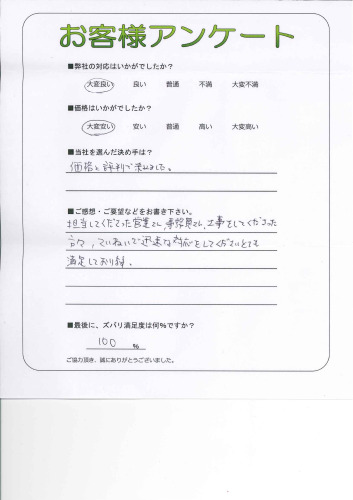 お客様アンケート
■弊社の対応はいかがでしたか?
大変良い 良い 普通 不満 大変不満
■価格はいかがでしたか?
大変安い 安い 普通 高い 大変高い
■当社を選んだ決め手は?
価格と評判で決めました。
■ご感想・ご要望などをお書き下さい。
担当してくださった営業さん,事務員さん,工事をしてくださった
方々,ていねいで迅速な対応をしてくださいとても
満足しております。
■最後に、ズバリ満足度は何%ですか?
100 %
ご協力頂き、誠にありがとうございました。